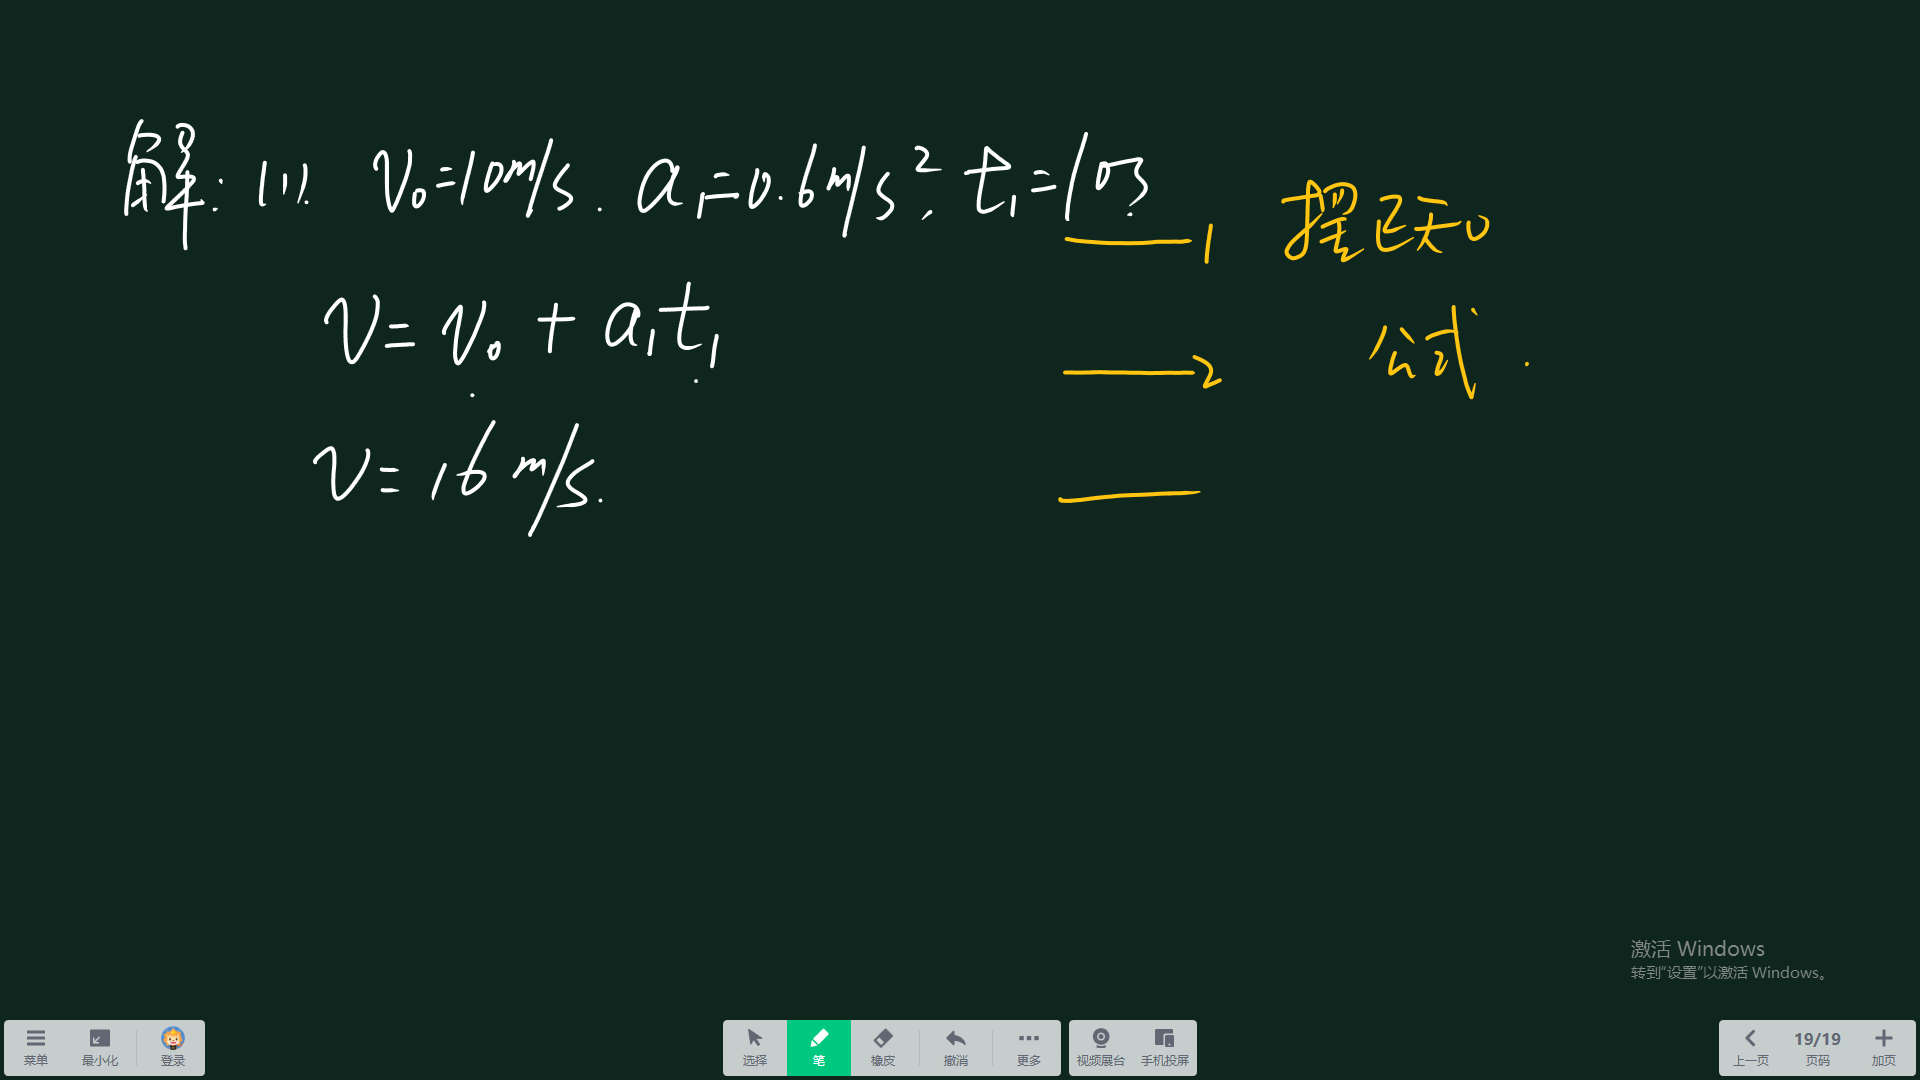 解：(1). v₀=10m/s. a₁=0.6m/s², t₁=10s.
1 摆已知。
v=v₀+a₁t₁
2 公式.
v=16m/s.
激活 Windows
转到“设置”以激活 Windows。
菜单 最小化 登录 选择 笔 橡皮 撤消 更多 视频展台 手机投屏 上一页 19/19 页码 加页